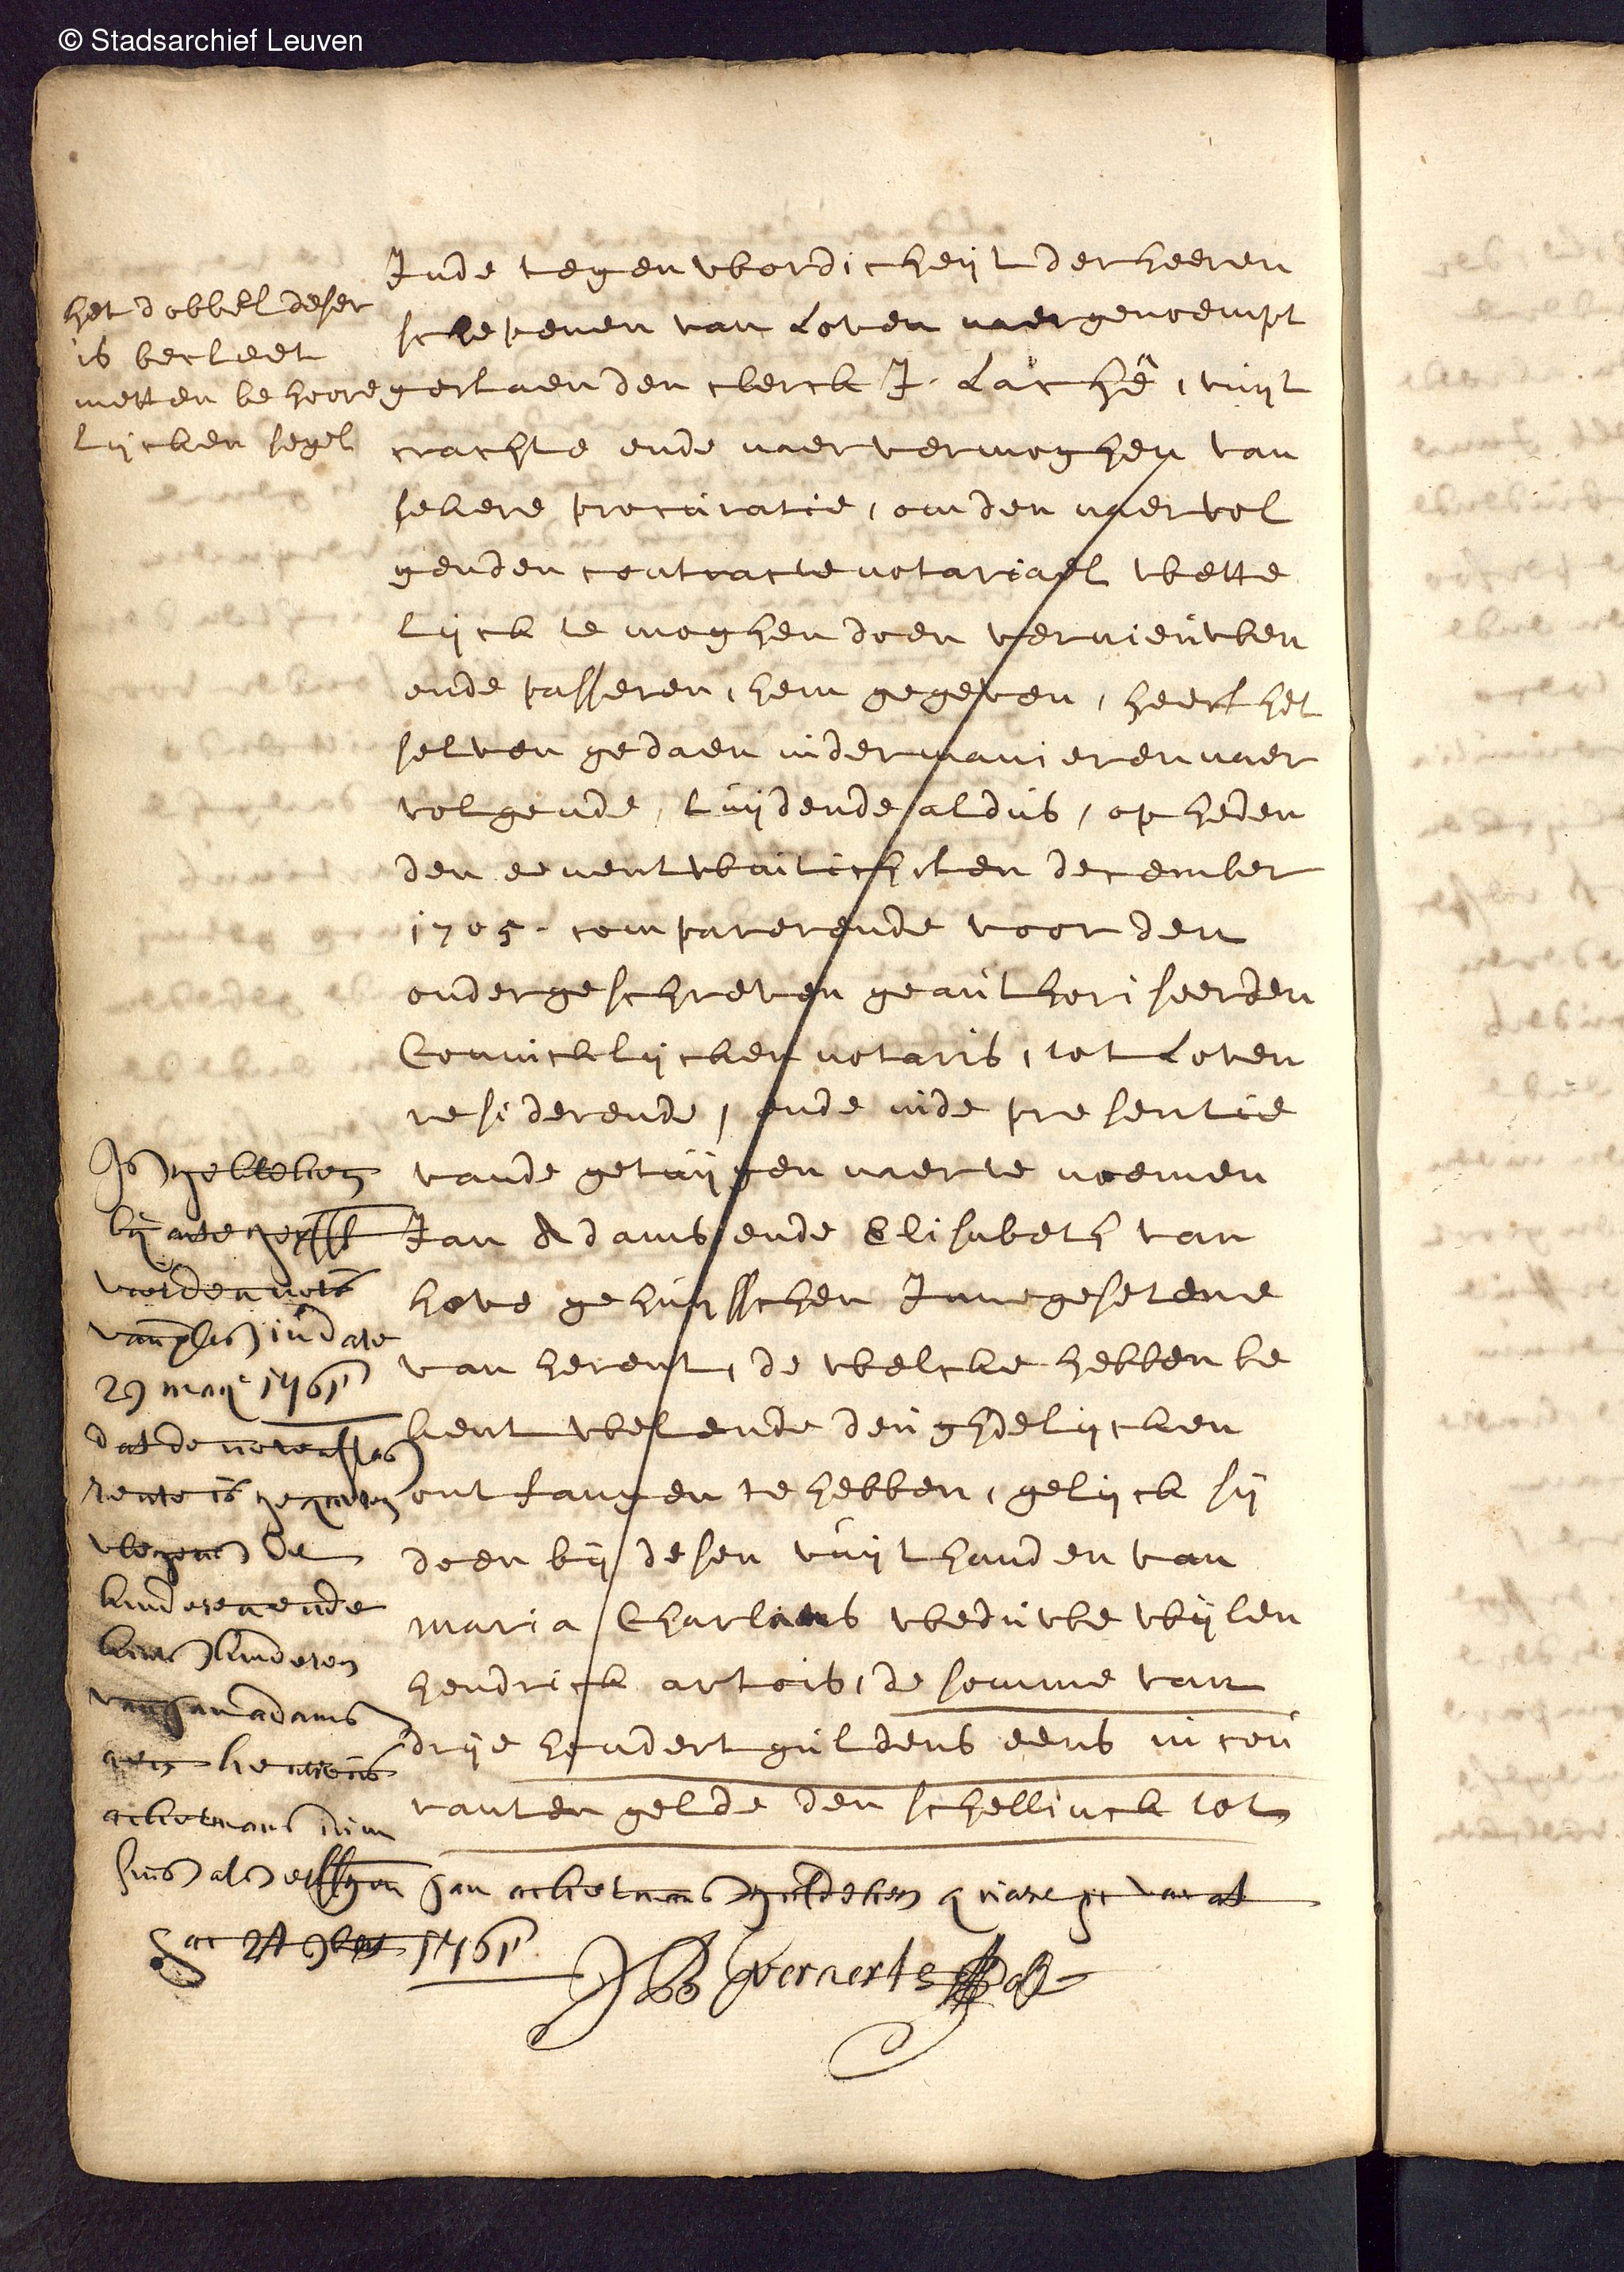 © Stadsarchief Leuven
het dobbel deser
is becleet
metten behoore
lijcken segel
Inde tegenwoordicheijt der heeren
schepenen van Loven naergenoempt
gestaen den clerck J. Lachê, vuijt
crachte ende naer vermoghen van
sekere procuratie, om den naervol
genden contracte notariael wette
lijck te moghen doen vernieuwen
ende passeren, hem gegeven, heeft het
selven gedaen inder manieren naer
volgende, luijdende aldus, op heden
den eenentwintichsten december
1705. comparerende voor den
ondergeschreven geauthoriseerden
Conincklijcken notaris, tot Loven
residerende, ende inde presentie
vande getuijgen naer te noemen
Jan Adams ende Elisabeth van
hove gehuijsschen Innegesetene
van herent, de welcke hebben be
kent wel ende deughdelijcken
ontfangen te hebben, gelijck sij
doen bij desen vuijt handen van
maria Charlaens weduwe wijlen
hendrick artois, de somme van
drije hondert guldens eens in cou
ranten gelde den schellinck tot
Is gebleken
bij acte
voor den nots
in date
29 1761
dat de
rente is
de
kinderen ende
kinderen
van Jan adams
Jan
1761